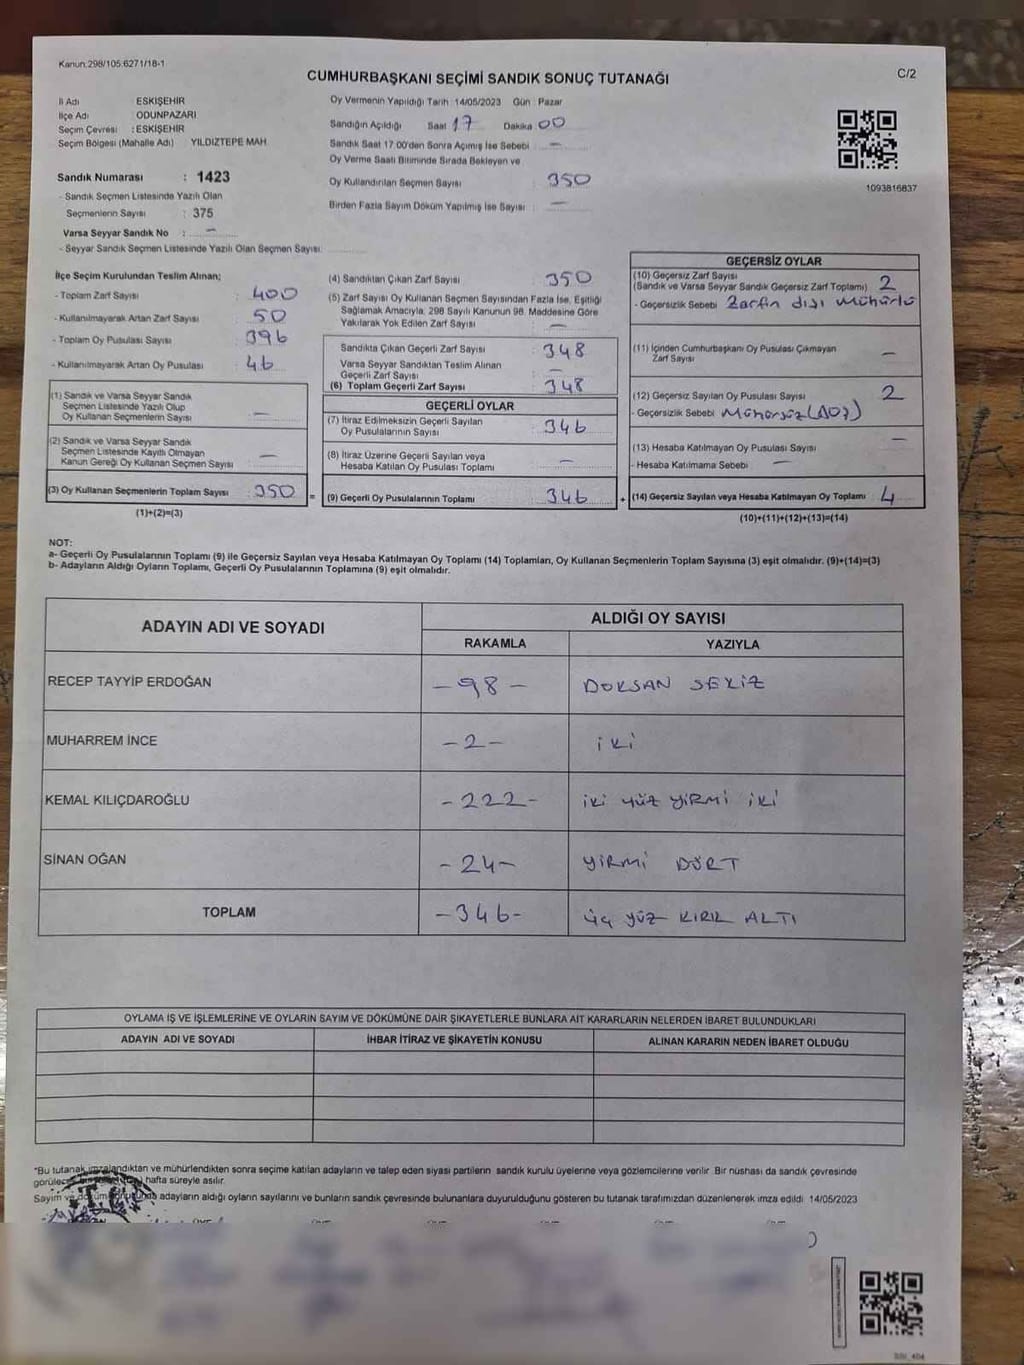 Kanun:298/105.6271/18-1
C/2
CUMHURBAŞKANI SEÇİMİ SANDIK SONUÇ TUTANAĞI
İl Adı : ESKİŞEHİR
İlçe Adı : ODUNPAZARI
Seçim Çevresi : ESKİŞEHİR
Seçim Bölgesi (Mahalle Adı) YILDIZTEPE MAH
Sandık Numarası : 1423
- Sandık Seçmen Listesinde Yazılı Olan
Seçmenlerin Sayısı : 375
Varsa Seyyar Sandık No : -
- Seyyar Sandık Seçmen Listesinde Yazılı Olan Seçmen Sayısı:
Oy Vermenin Yapıldığı Tarih :14/05/2023 Gün : Pazar
Sandığın Açıldığı Saat 17 Dakika 00
Sandık Saat 17:00'den Sonra Açımış İse Sebebi : -
Oy Verme Saati Bitiminde Sırada Bekleyen ve
Oy Kullandırılan Seçmen Sayısı : 350
Birden Fazla Sayım Döküm Yapılmış İse Sayısı : -
1093816837
İlçe Seçim Kurulundan Teslim Alınan;
- Toplam Zarf Sayısı : 400
- Kullanılmayarak Artan Zarf Sayısı : 50
- Toplam Oy Pusulası Sayısı : 396
- Kullanılmayarak Artan Oy Pusulası : 46
(1) Sandık ve Varsa Seyyar Sandık
Seçmen Listesinde Yazılı Olup
Oy Kullanan Seçmenlerin Sayısı : -
(2) Sandık ve Varsa Seyyar Sandık
Seçmen Listesinde Kayıtlı Olmayan
Kanun Gereği Oy Kullanan Seçmen Sayısı : -
(3) Oy Kullanan Seçmenlerin Toplam Sayısı : 350
(1)+(2)=(3)
(4) Sandıktan Çıkan Zarf Sayısı : 350
(5) Zarf Sayısı Oy Kullanan Seçmen Sayısından Fazla İse, Eşitliği
Sağlamak Amacıyla, 298 Sayılı Kanunun 98. Maddesine Göre
Yakılarak Yok Edilen Zarf Sayısı : -
Sandıkta Çıkan Geçerli Zarf Sayısı : 348
Varsa Seyyar Sandıktan Teslim Alınan
Geçerli Zarf Sayısı : -
(6) Toplam Geçerli Zarf Sayısı : 348
GEÇERLİ OYLAR
(7) İtiraz Edilmeksizin Geçerli Sayılan
Oy Pusulalarının Sayısı : 346
(8) İtiraz Üzerine Geçerli Sayılan veya
Hesaba Katılan Oy Pusulası Toplamı : -
= (9) Geçerli Oy Pusulalarının Toplamı : 346
GEÇERSİZ OYLAR
(10) Geçersiz Zarf Sayısı
(Sandık ve Varsa Seyyar Sandık Geçersiz Zarf Toplamı) : 2
- Geçersizlik Sebebi : Zarfın dışı mühürlü
(11) İçinden Cumhurbaşkanı Oy Pusulası Çıkmayan
Zarf Sayısı : -
(12) Geçersiz Sayılan Oy Pusulası Sayısı : 2
- Geçersizlik Sebebi : Mühürsüz (AOZ)
(13) Hesaba Katılmayan Oy Pusulası Sayısı : -
- Hesaba Katılmama Sebebi : -
+ (14) Geçersiz Sayılan veya Hesaba Katılmayan Oy Toplamı : 4
(10)+(11)+(12)+(13)=(14)
NOT:
a- Geçerli Oy Pusulalarının Toplamı (9) ile Geçersiz Sayılan veya Hesaba Katılmayan Oy Toplamı (14) Toplamları, Oy Kullanan Seçmenlerin Toplam Sayısına (3) eşit olmalıdır. (9)+(14)=(3)
b- Adayların Aldığı Oyların Toplamı, Geçerli Oy Pusulalarının Toplamına (9) eşit olmalıdır.
ADAYIN ADI VE SOYADI
ALDIĞI OY SAYISI
RAKAMLA YAZIYLA
RECEP TAYYİP ERDOĞAN -98- DOKSAN SEKİZ
MUHARREM İNCE -2- iki
KEMAL KILIÇDAROĞLU -222- iki yüz yirmi iki
SİNAN OĞAN -24- YİRMİ DÖRT
TOPLAM -346- üç yüz KIRK ALTI
OYLAMA İŞ VE İŞLEMLERİNE VE OYLARIN SAYIM VE DÖKÜMÜNE DAİR ŞİKAYETLERLE BUNLARA AİT KARARLARIN NELERDEN İBARET BULUNDUKLARI
ADAYIN ADI VE SOYADI İHBAR İTİRAZ VE ŞİKAYETİN KONUSU ALINAN KARARIN NEDEN İBARET OLDUĞU
*Bu tutanak imzalandıktan ve mühürlendikten sonra seçime katılan adayların ve talep eden siyasi partilerin sandık kurulu üyelerine veya gözlemcilerine verilir. Bir nüshası da sandık çevresinde
hafta süreyle asılır.
Sayım ve adayların aldığı oyların sayılarını ve bunların sandık çevresinde bulunanlara duyurulduğunu gösteren bu tutanak tarafımızdan düzenlenerek imza edildi. 14/05/2023